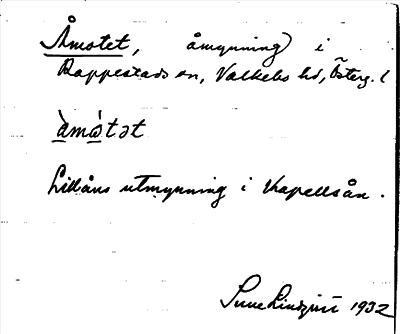 Åmotet, åmynning i
Rappestads sn, Valkebo hd, Österg. l
àmó̱tət
Lillåns utmynning i Kapellån.
Sune Lindqvist 1932